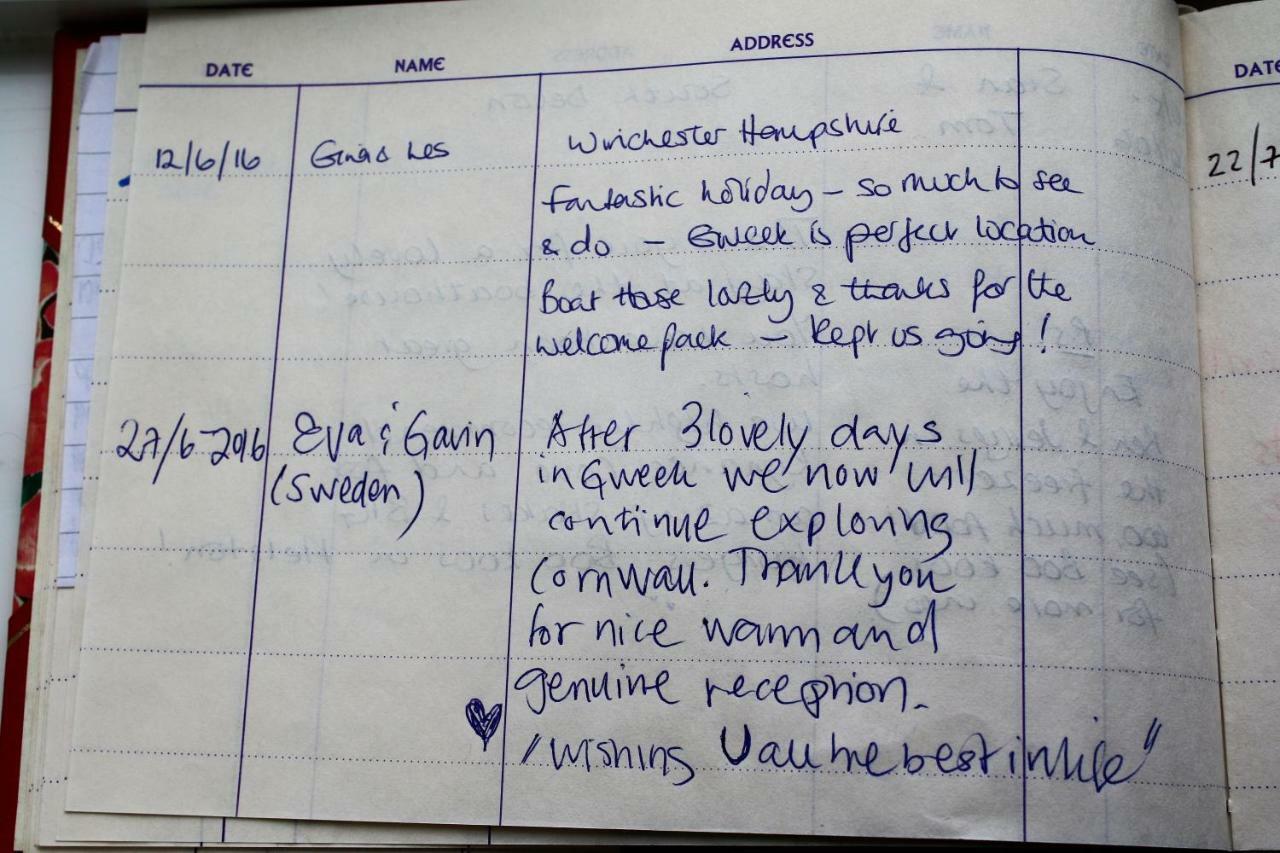 DATE NAME ADDRESS
12/6/16 Gina & Les Winchester Hampshire
Fantastic holiday – so much to see
& do – Gweek is perfect location
Boat House lovely & thanks for the
welcome pack – kept us going!
27/6-2016 Eva & Gavin After 3 lovely days
(Sweden) in Gweek we now will
continue exploring
Cornwall. Thank you
for nice warm and
genuine reception.
"Wishing U all the best in life"
DATE
22/7